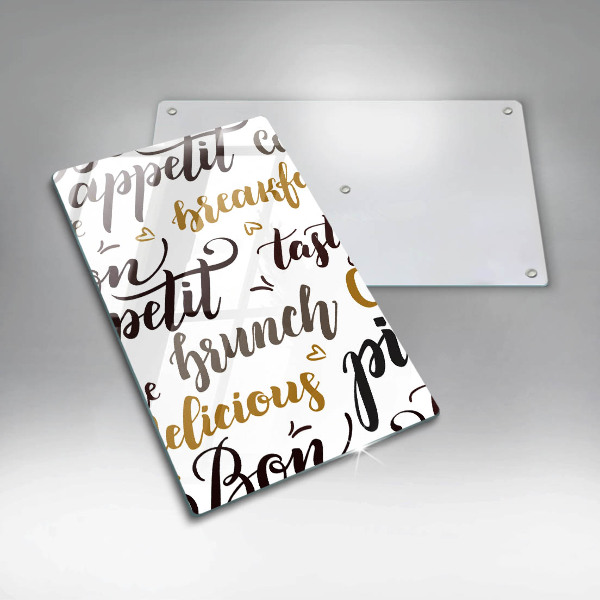 appetit
breakfa
on
tast
petit
brunch
pi
elicious
Bon